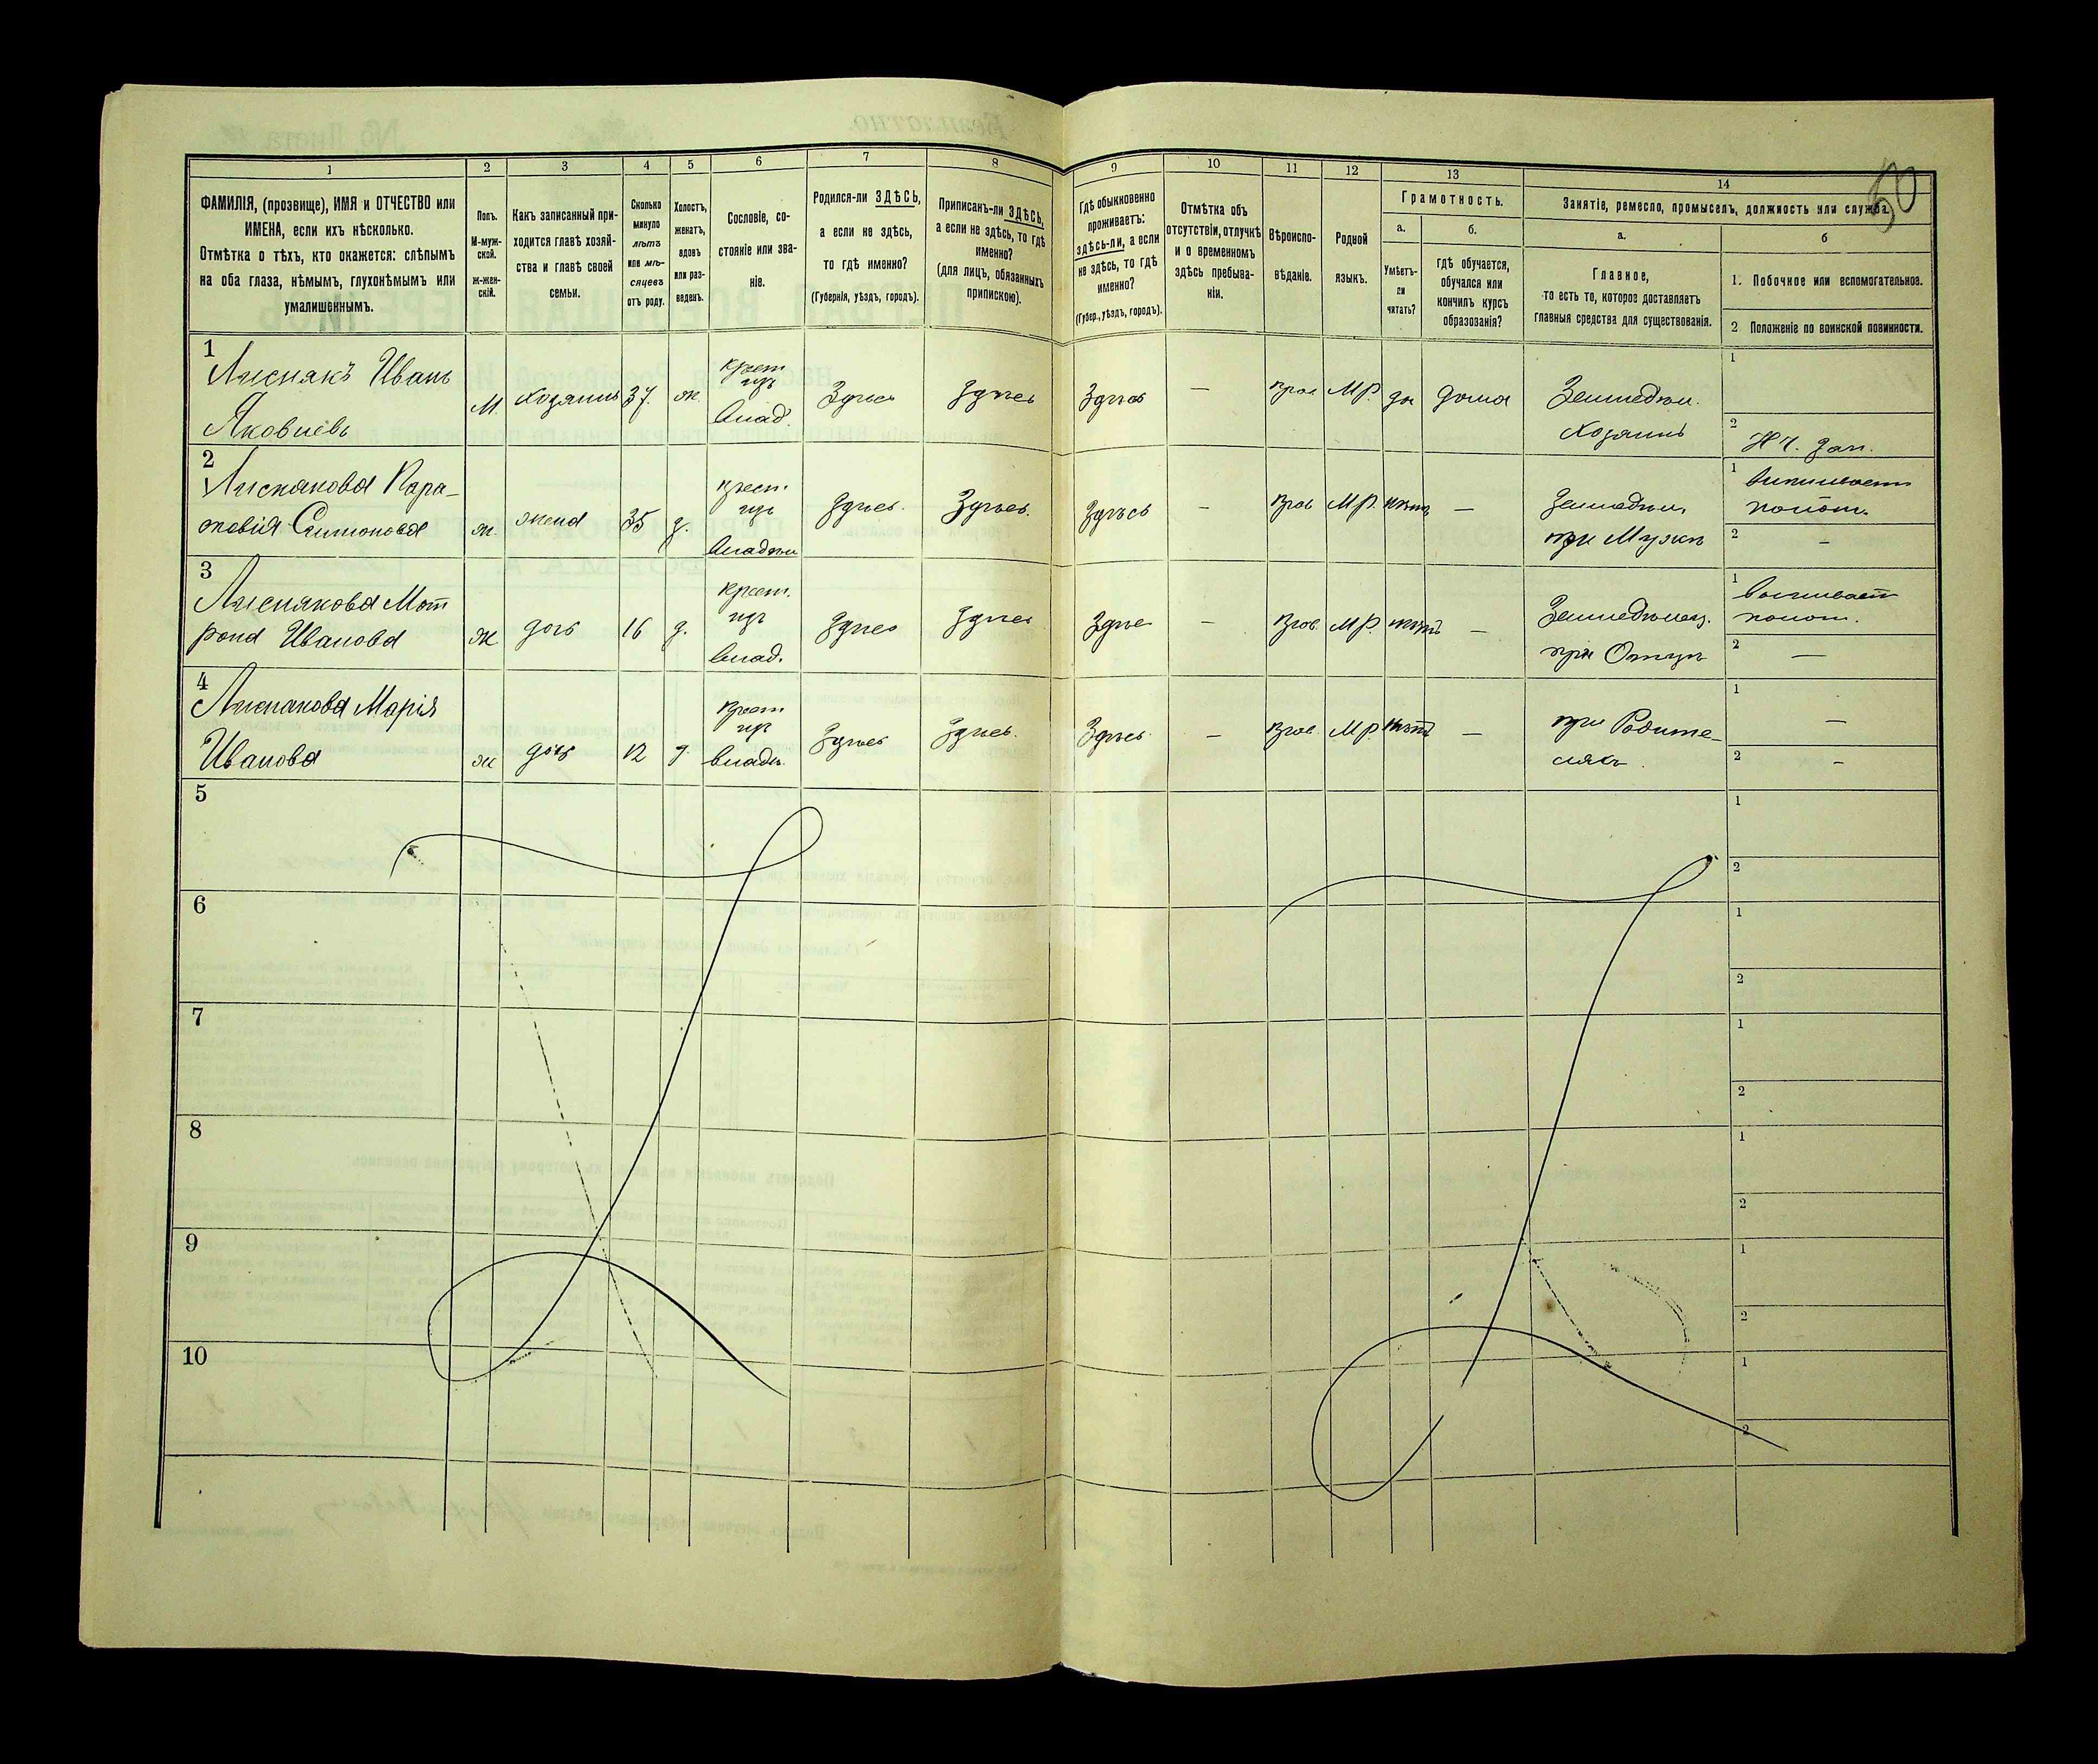 50
1 2 3 4 5 6 7 8 9 10 11 12 13 14
ФАМИЛІЯ, (прозвище), ИМЯ и ОТЧЕСТВО или
ИМЕНА, если ихъ нѣсколько.
Отмѣтка о тѣхъ, кто окажется: слѣпымъ
на оба глаза, нѣмымъ, глухонѣмымъ или
умалишеннымъ.
Полъ.
М-муж-
ской.
ж-жен-
скій.
Какъ записанный при-
ходится главѣ хозяй-
ства и главѣ своей
семьи.
Сколько
минуло
лѣтъ
или мѣ-
сяцевъ
отъ роду.
Холостъ,
женатъ,
вдовъ
или раз-
веденъ.
Сословіе, со-
стояніе или зва-
ніе.
Родился-ли ЗДѢСЬ,
а если не здѣсь,
то гдѣ именно?
(Губернія, уѣздъ, городъ).
Приписанъ-ли ЗДѢСЬ,
а если не здѣсь, то гдѣ
именно?
(для лицъ, обязанныхъ
припискою).
Гдѣ обыкновенно
проживаетъ:
здѣсь-ли, а если
не здѣсь, то гдѣ
именно?
(Губер., уѣздъ, городъ).
Отмѣтка объ
отсутствіи, отлучкѣ
и о временномъ
здѣсь пребыва-
ніи.
Вѣроиспо-
вѣданіе.
Родной
языкъ.
Грамотность.
а.
Умѣетъ-
ли
читать?
б.
гдѣ обучается,
обучался или
кончилъ курсъ
образованія?
Занятіе, ремесло, промыселъ, должность или служба.
а.
Главное,
то есть то, которое доставляетъ
главныя средства для существованія.
б
1. Побочное или вспомогательное.
2 Положеніе по воинской повинности.
1
Лиснякъ Иванъ
Яковлевъ
М. Хозяинъ 37. ж.
Крест
изъ
влад.
Здѣсь Здѣсь Здѣсь — МР. да дома
Земледѣл.
Хозяинъ
1
2
2
Лиснякова Пара-
сковія Симонова
ж. жена 35 з.
крест.
изъ
владѣл
Здѣсь. Здѣсь. Здѣсь — МР. нѣтъ —
Земледѣл.
при Мужѣ
1
полот.
2 —
3
Лиснякова Мот
рона Иванова
ж дочь 16 д.
Крест.
изъ
влад.
Здѣсь Здѣсь Здѣсь — МР. нѣтъ —
Земледѣлец.
при Отцѣ
1
полот.
2 —
4
Лиснякова Марія
Иванова
ж дочь 12 д.
Крест
изъ
владѣ.
Здѣсь Здѣсь. Здѣсь — МР. нѣтъ —
при Родите-
ляхъ.
1 —
2 -
5
1
2
6
1
2
7
1
2
8
1
2
9
1
2
10
1
2